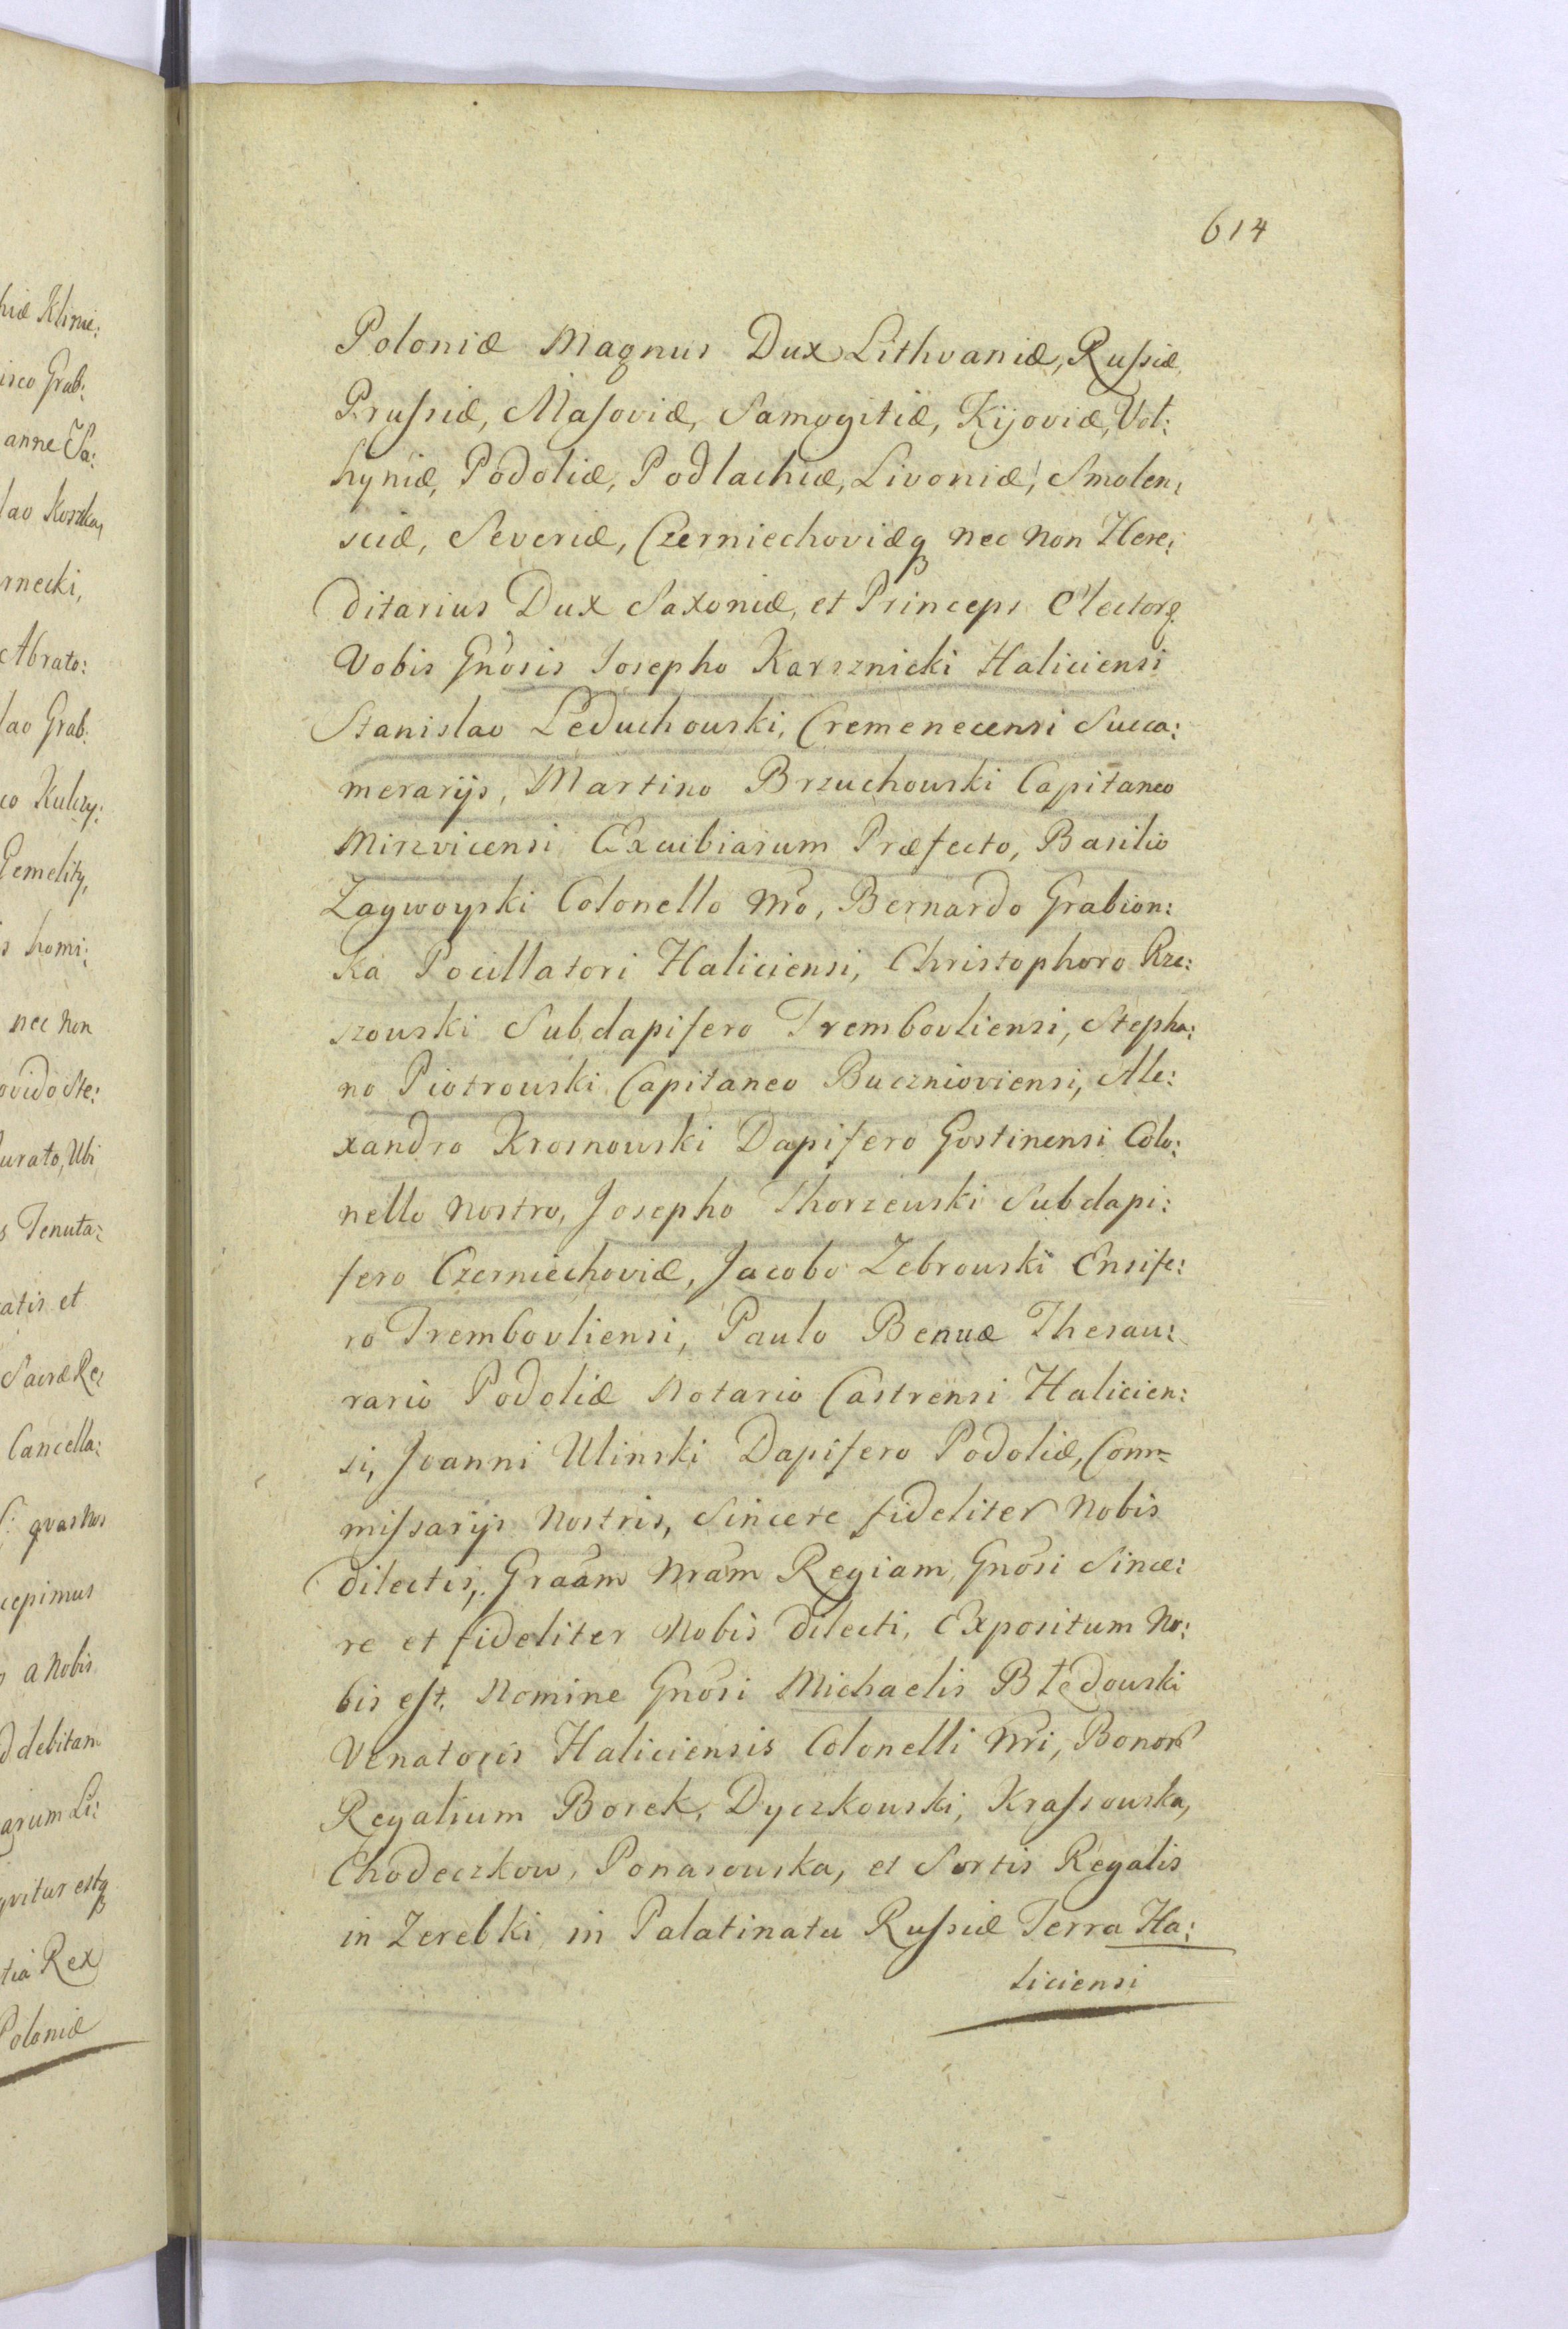 614
Poloniæ Magnus Dux Lithvaniæ, Rußiæ,
Prußiæ, Masoviæ, Samogitiæ, Kijoviæ, Vol:
hyniæ, Podoliæ, Podlachiæ, Livoniæ, Smolen:
sciæ, Severiæ, Czerniechoviæq nec non Here:
ditarius Dux Saxoniæ, et Princeps Elector
Vobis Gnosis Josepho Karsznicki Haliciensi
Stanislao Leduchowski, Cremenecensi Succa:
merarijs, Martino Brzuchowski Capitaneo
Miszvicensi Excubiarum Præfecto, Basilio
Zagwoyski Colonello nro, Bernardo Grabion:
ka Pocillatori Haliciensi, Christophoro Rze:
szowski Subdapifero Trembovliensi, Stepha:
no Piotrowski Capitaneo Bucznioviensi, Ale:
xandro Krosnowski Dapifero Gostinensi Colo:
nello nostro, Josepho Thorzewski Subdapi:
fero Czerniechoviæ, Jacobo Zebrowski Ensife:
ro Trembovliensi, Paulo Benuæ Thesau:
rario Podoliæ Notario Castrensi Halicien:
si, Joanni Ulinski Dapifero Podoliæ, Com=
mißarijs Nostris, Sincere fideliter Nobis
dilectis, Graam Nram Regiam, Gnosi Since:
re et fideliter Nobis dilecti, Expositum No:
bis est, Nomine Gnosi Michaelis Błędowski
Venatoris Haliciensis Colonelli Nri, Bonor
Regalium Borek, Dyczkowski, Kraßowska,
Chodeczkow, Ponasowska, et Sortis Regalis
in Zerebki in Palatinatu Rußiæ Terra Ha:
liciensi